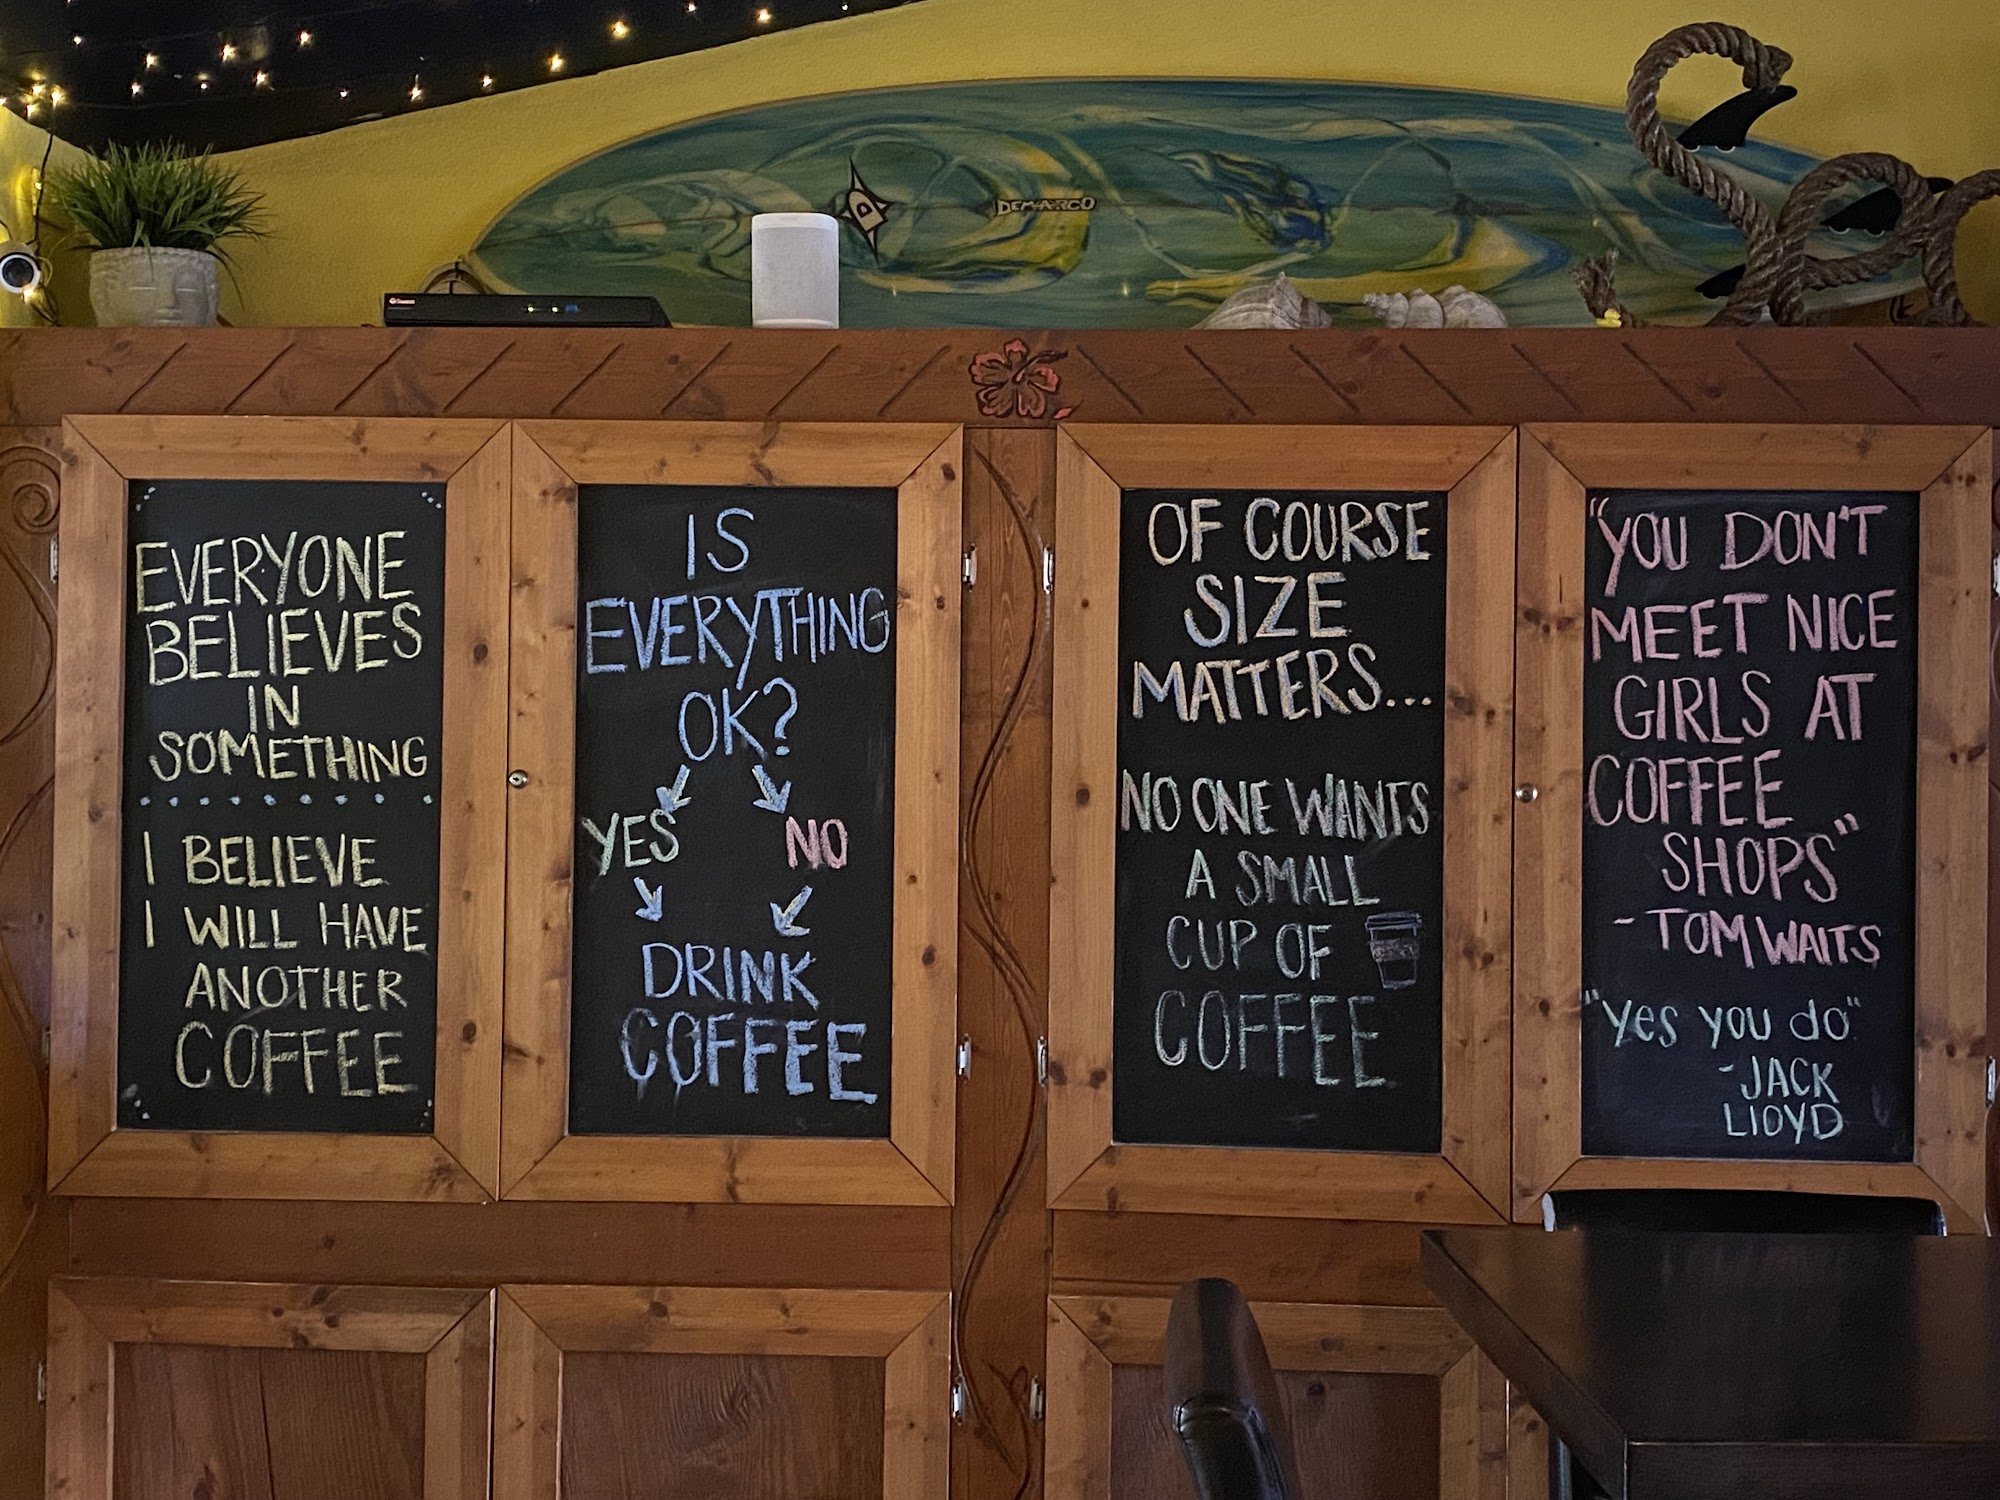 DEMARCO
EVERYONE
BELIEVES
IN
SOMETHING
I BELIEVE
I WILL HAVE
ANOTHER
COFFEE
IS
EVERYTHING
OK?
YES NO
DRINK
COFFEE
OF COURSE
SIZE
MATTERS...
NO ONE WANTS
A SMALL
CUP OF
COFFEE
"YOU DON'T
MEET NICE
GIRLS AT
COFFEE
SHOPS"
-TOM WAITS
"yes you do"
-JACK
LlOYD